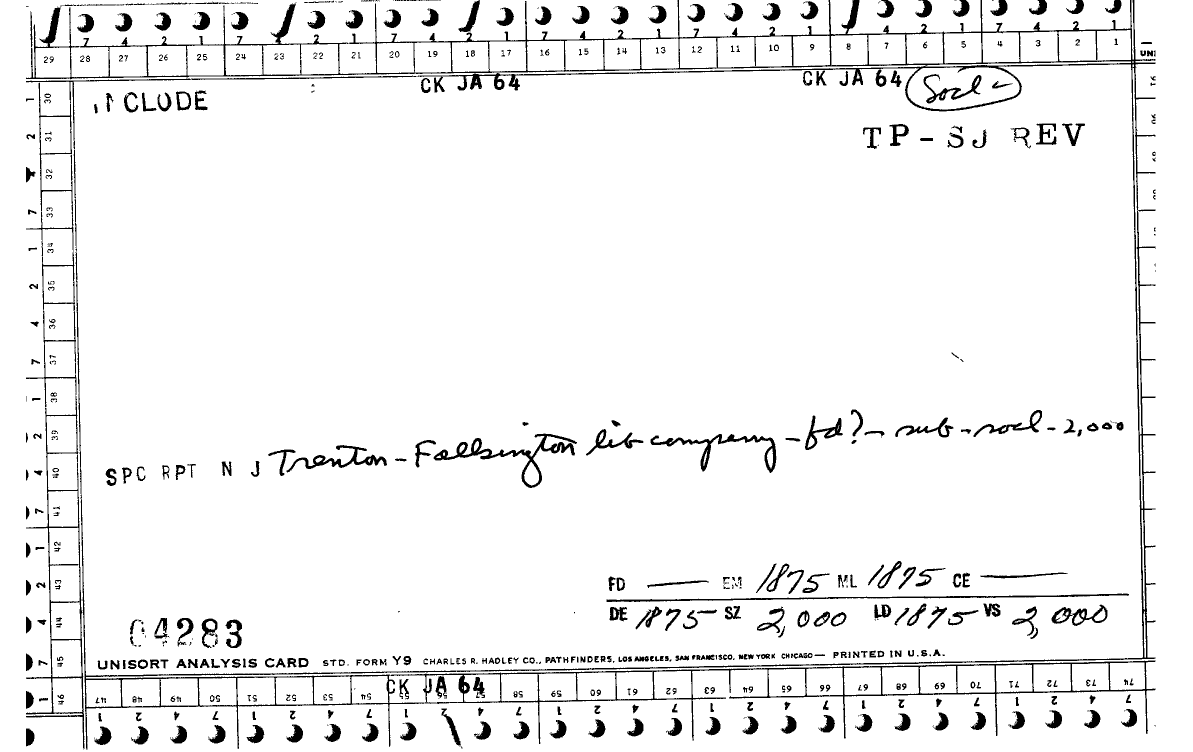 7 4 2 1 7 2 1 7 4 2 1 7 4 2 1 7 4 2 1 7 4 2 1 7 4 2 1
29 28 27 26 25 24 23 22 21 20 19 18 17 16 15 14 13 12 11 10 9 8 7 6 5 4 3 2 1 UNI
CK JA 64 CK JA 64 Socl
CLUDE
TP-SJ REV
1 30
2 31
32
7 33
1 34
2 35
4 36
7 37
1 38
2 39
4 40
7 41
1 42
2 43
4 44
7 45
1 46
SPC RPT N J Trenton-Fallsington lib company-fd?-sub-socl-2,000
FD — EM 1875 ML 1875 CE —
DE 1875 SZ 2,000 LD 1875 VS 2,000
04283
UNISORT ANALYSIS CARD STD. FORM Y9 CHARLES R. HADLEY CO., PATHFINDERS, LOS ANGELES, SAN FRANCISCO, NEW YORK CHICAGO— PRINTED IN U.S.A.
CK JA 64
47 48 49 50 51 52 53 54 55 56 57 58 59 60 61 62 63 64 65 66 67 68 69 70 71 72 73 74
1 2 4 7 1 2 4 7 1 2 4 7 1 2 4 7 1 2 4 7 1 2 4 7 1 2 4 7